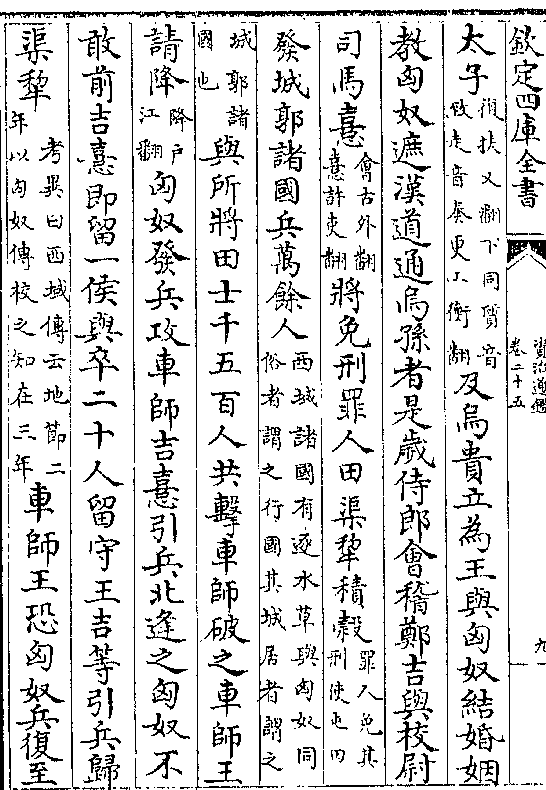 欽定四庫全書
資治通鑑
卷二十五
九
太子復扶又翻下同質音致走音奏更工衡翻及烏貴立為王與匈奴結婚姻
教匈奴遮漢道通烏孫者是歲侍郎會稽鄭吉與校尉
司馬憙會古外翻憙許吏翻將免刑罪人田渠犂積穀罪人免其刑使屯田
發城郭諸國兵萬餘人西域諸國有逐水草與匈奴同俗者謂之行國其城居者謂之
城郭諸國也與所將田士千五百人共擊車師破之車師王
請降降戶江翻匈奴發兵攻車師吉憙引兵北逢之匈奴不
敢前吉憙即留一侯與卒二十人留守王吉等引兵歸
渠犂考異曰西域傳云地節二年以匈奴傳校之知在三年車師王恐匈奴兵復至